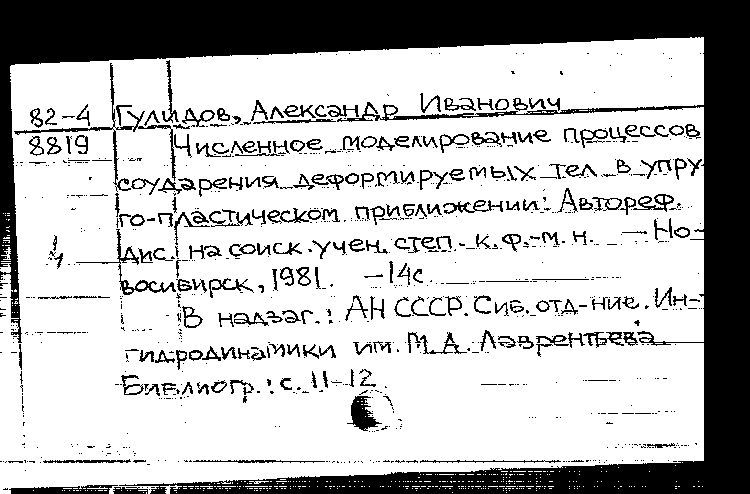 82-4 Гулидов, Александр Иванович
8819 Численное моделирование процессов
соударения деформируемых тел в упру-
го-пластическом приближении: Автореф.
дис. на соиск. учен. степ. к. ф.-м. н. — Но-
восибирск, 1981. – 14с.
В надзаг.: АН СССР. Сиб. отд-ние. Ин-т
гидродинамики им. М.А. Лаврентьева.
Библиогр.: с. 11-12.